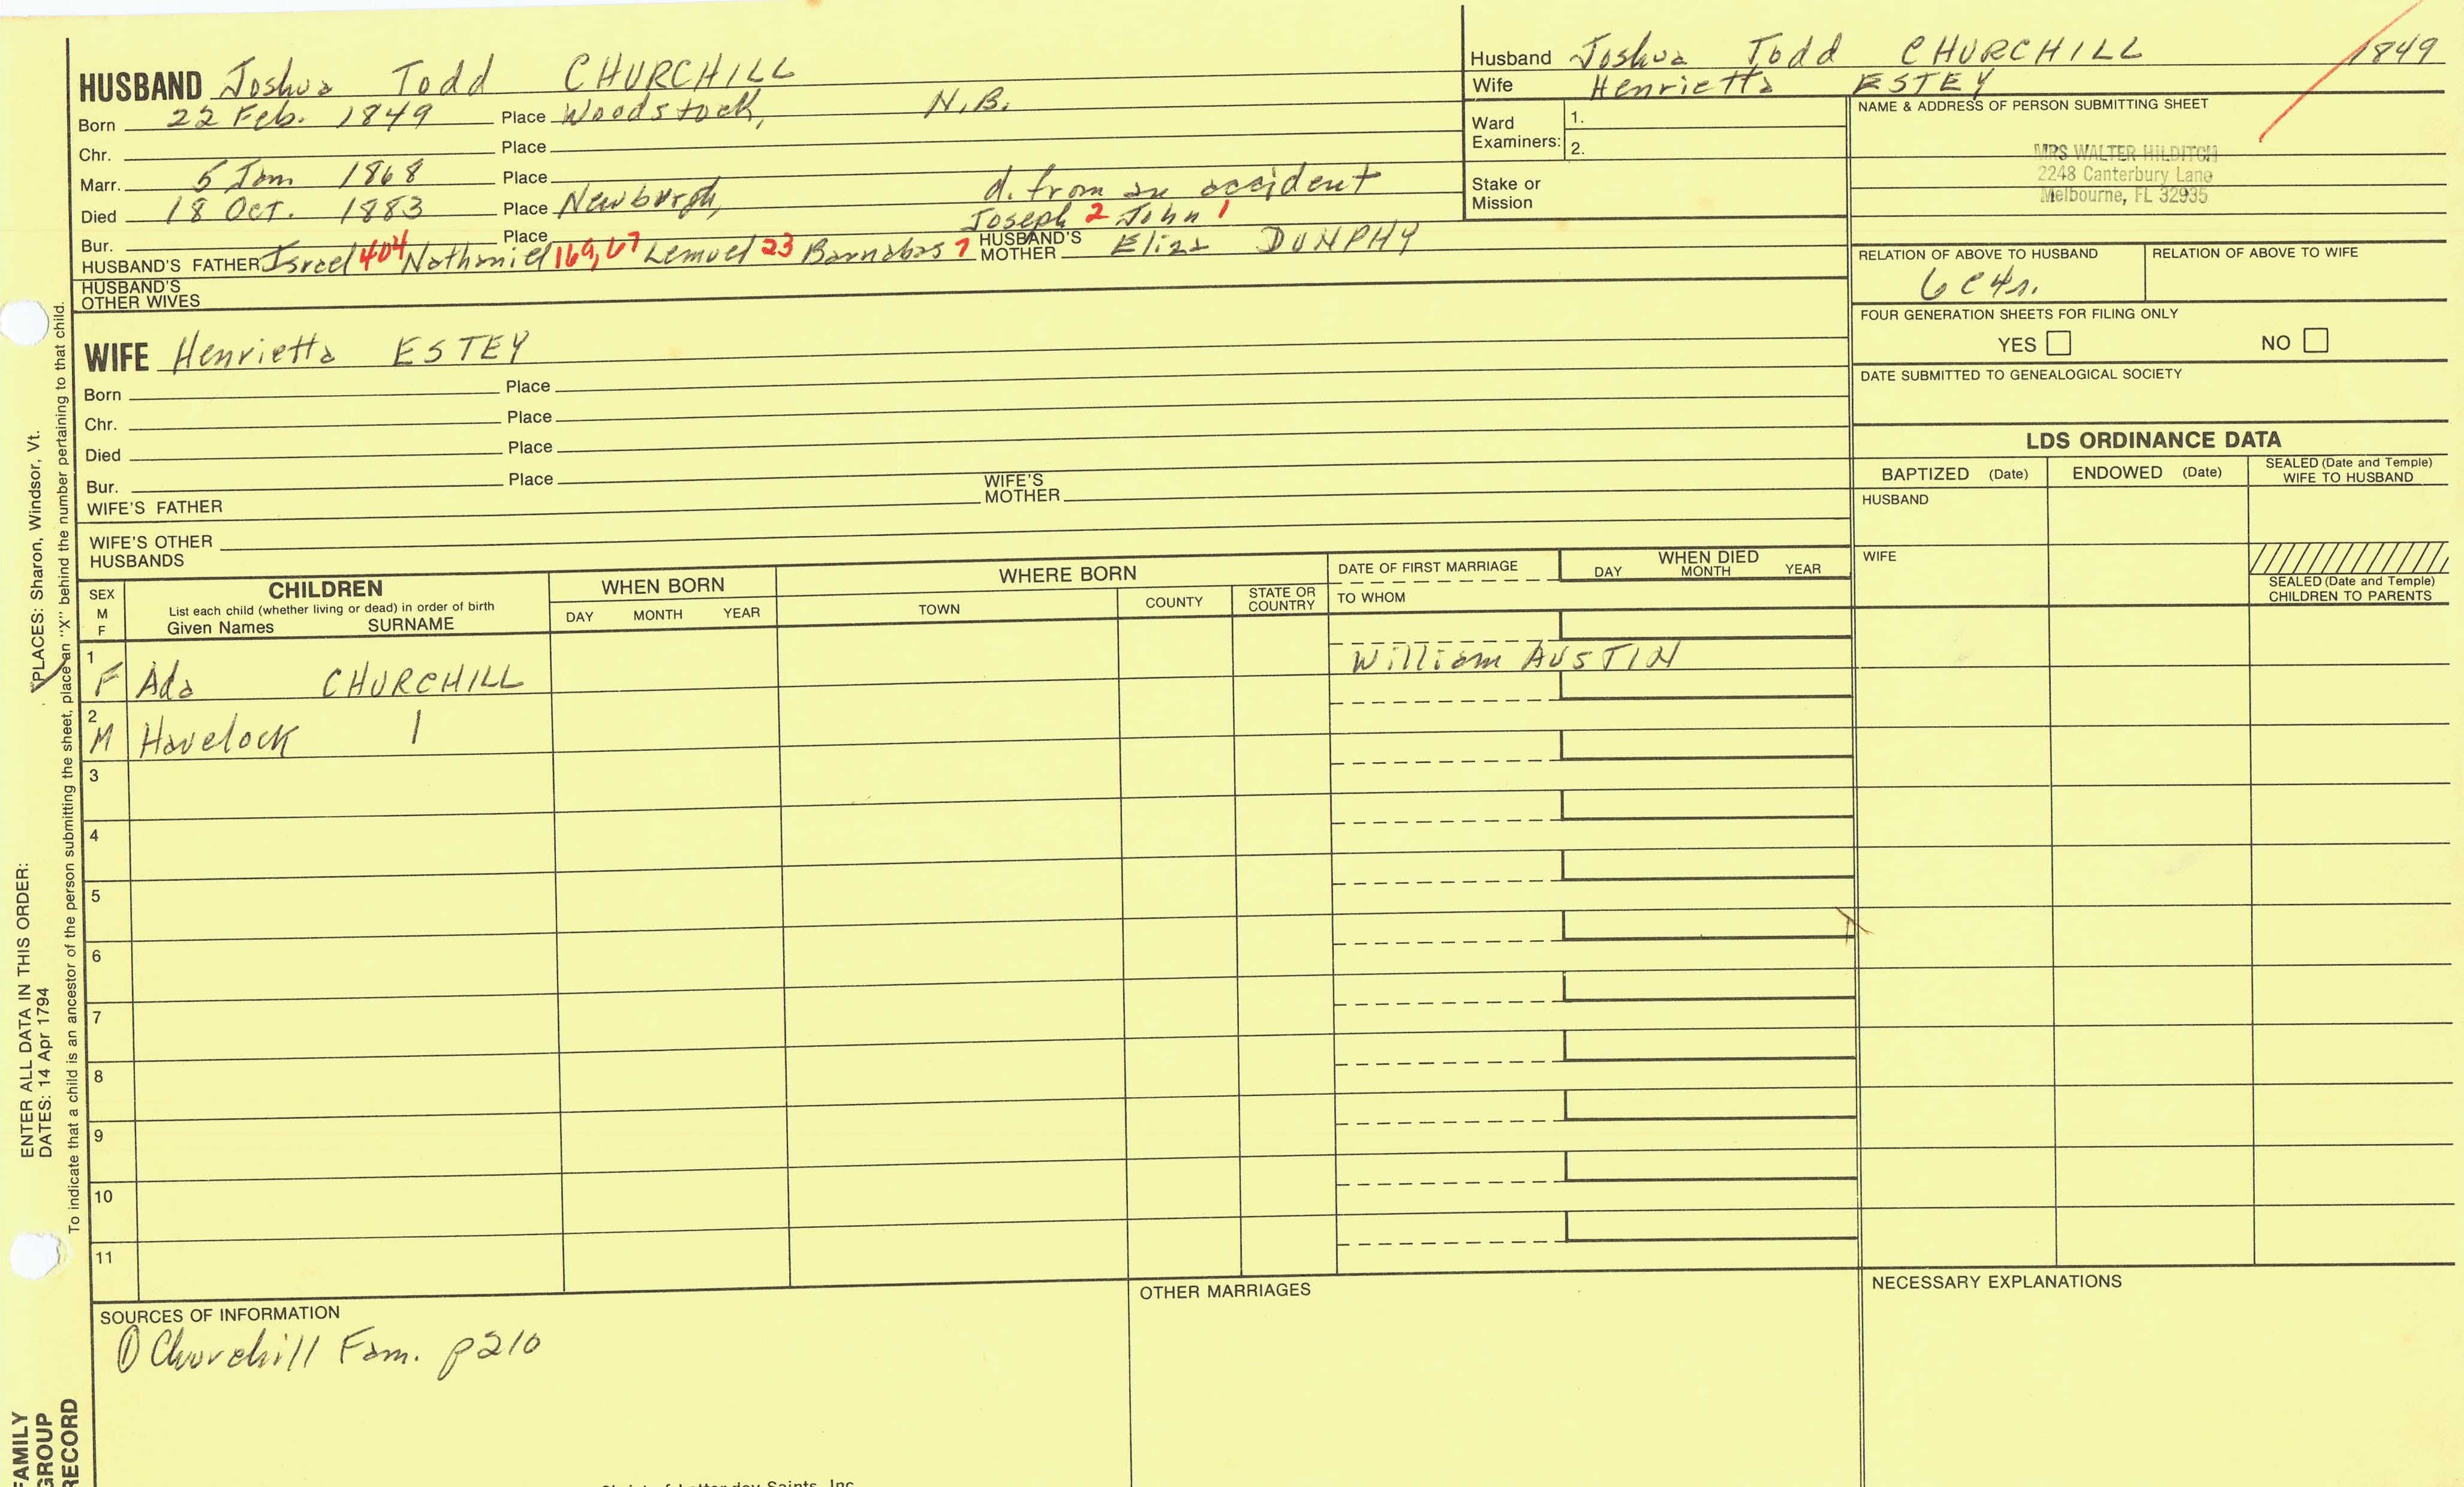 HUSBAND Joshua Todd CHURCHILL
Born 22 Feb. 1849 Place Woodstock, N.B.
Chr. Place
Marr. 5 Jan 1868 Place
Died 18 Oct. 1883 Place Newburgh, d. from an accident
Bur. Place Joseph 2 John 1
HUSBAND'S FATHER Israel 404 Nathaniel 169, 67 Lemuel 23 Barnabas 7 HUSBAND'S MOTHER Eliza DUNPHY
HUSBAND'S OTHER WIVES
Husband Joshua Todd CHURCHILL 1849
Wife Henrietta ESTEY
Ward Examiners: 1.
2.
Stake or Mission
NAME & ADDRESS OF PERSON SUBMITTING SHEET
MRS WALTER HILDITCH
2248 Canterbury Lane
Melbourne, FL 32935
RELATION OF ABOVE TO HUSBAND RELATION OF ABOVE TO WIFE
6c4r.
FOUR GENERATION SHEETS FOR FILING ONLY
YES NO
DATE SUBMITTED TO GENEALOGICAL SOCIETY
WIFE Henrietta ESTEY
Born Place
Chr. Place
Died Place
Bur. Place
WIFE'S FATHER WIFE'S MOTHER
WIFE'S OTHER HUSBANDS
LDS ORDINANCE DATA
BAPTIZED (Date) ENDOWED (Date) SEALED (Date and Temple) WIFE TO HUSBAND
HUSBAND
WIFE
SEALED (Date and Temple) CHILDREN TO PARENTS
SEX M F
CHILDREN
List each child (whether living or dead) in order of birth
Given Names SURNAME
WHEN BORN
DAY MONTH YEAR
WHERE BORN
TOWN COUNTY STATE OR COUNTRY
DATE OF FIRST MARRIAGE
TO WHOM
WHEN DIED
DAY MONTH YEAR
1 F Ada CHURCHILL William AUSTIN
2 M Havelock |
3
4
5
6
7
8
9
10
11
SOURCES OF INFORMATION
① Churchill Fam. p210
OTHER MARRIAGES
NECESSARY EXPLANATIONS
ENTER ALL DATA IN THIS ORDER:
DATES: 14 Apr 1794
PLACES: Sharon, Windsor, Vt.
To indicate that a child is an ancestor of the person submitting the sheet, place an "X" behind the number pertaining to that child.
FAMILY
GROUP
RECORD